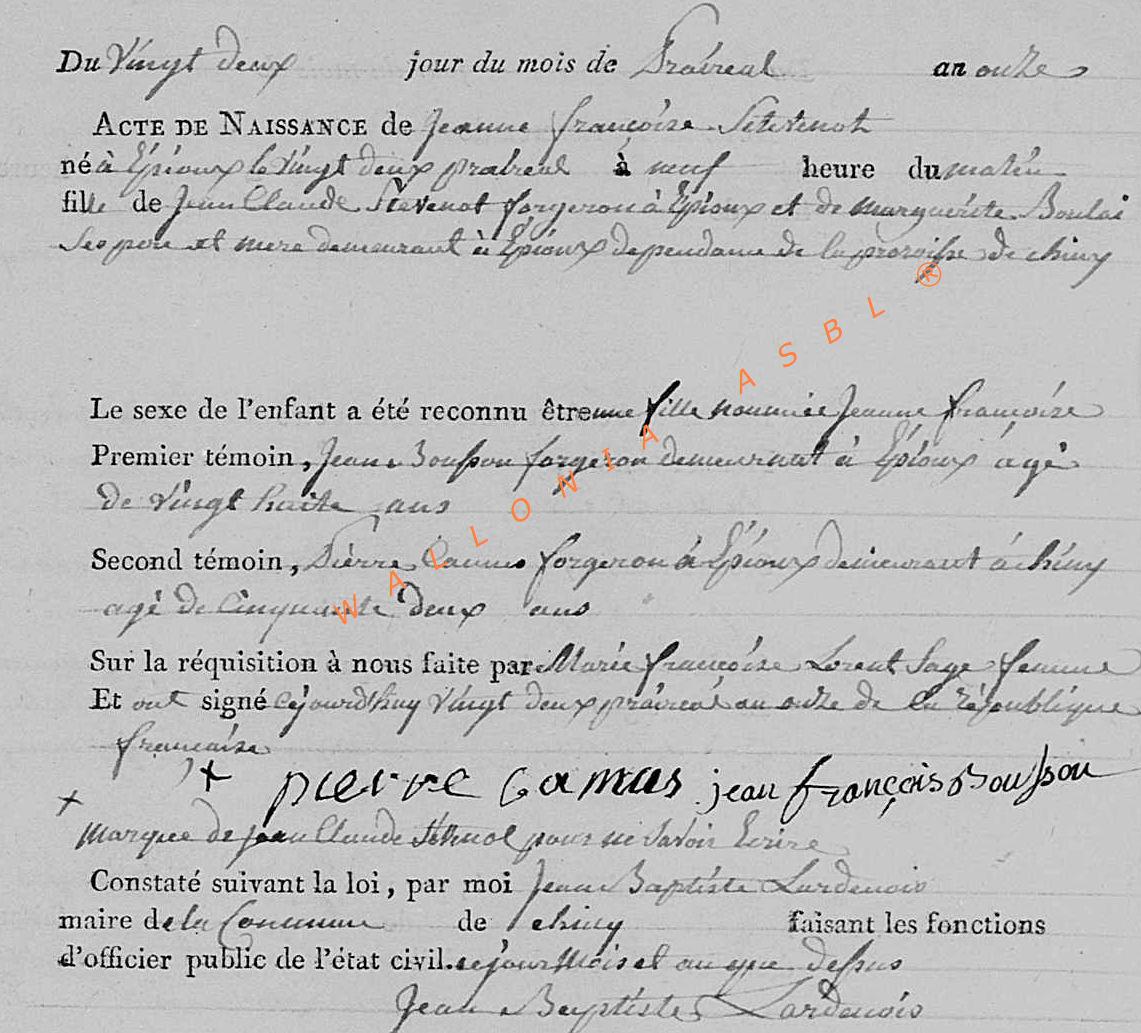 Du Vingt deux jour du mois de Prairéal an onze
ACTE DE NAISSANCE de Jeanne françoise Stevenot
né à Épioux le Vingt deux prairéal à neuf heure du matin
fille de Jean Claude Stevenot forgeron à Épioux et de marguerite Boulai
Ses pere et mere demeurant à Épioux dependame de la de chiny
Le sexe de l'enfant a été reconnu être une fille nommée Jeanne françoise
Premier témoin, Jean Bousson forgeron à Épioux âgé
de Vingt huite ans
Second témoin, Pierre Camus forgeron à Épioux demeurant à chiny
agé de Cinquante deux ans
Sur la réquisition à nous faite par Marie françoise Lorent Sage femme
Et ont signé cejourdhuy Vingt deux prairéal an onze de la république
francaise
+ pierre camus jean françois Bousson
+
marque de jean Claude pour ne Savoir Ecrire
Constaté suivant la loi, par moi Jean Baptiste Lardenois
maire de la Commune de chiny faisant les fonctions
d'officier public de l'état civil. ce jour Mois et an que dessus
Jean Baptiste Lardenois
WALLONIA ASBL ®